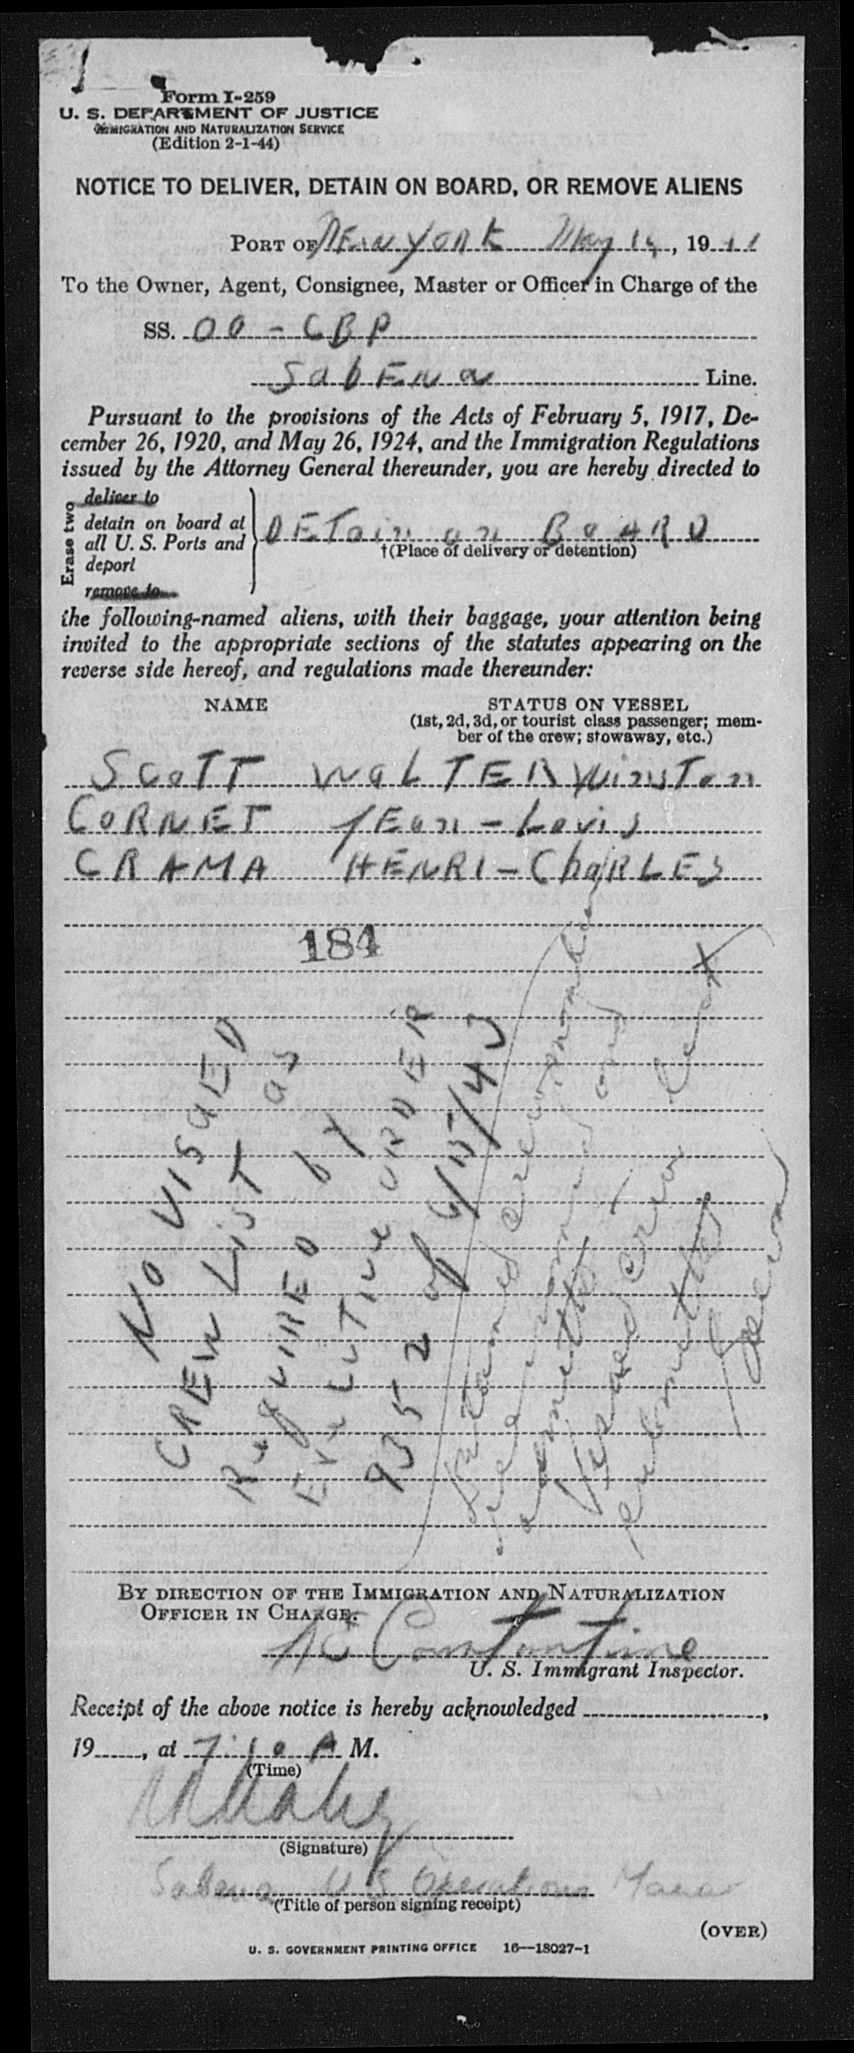 Form I-259
U. S. DEPARTMENT OF JUSTICE
IMMIGRATION AND NATURALIZATION SERVICE
(Edition 2-1-44)
NOTICE TO DELIVER, DETAIN ON BOARD, OR REMOVE ALIENS
PORT OF NEW YORK May 14, 19
To the Owner, Agent, Consignee, Master or Officer in Charge of the
SS. OO - CBP
SabENa Line.
Pursuant to the provisions of the Acts of February 5, 1917, De-
cember 26, 1920, and May 26, 1924, and the Immigration Regulations
issued by the Attorney General thereunder, you are hereby directed to
Erase two
deliver to
detain on board at
all U. S. Ports and
deport
remove to
DETain on BOARD
†(Place of delivery or detention)
the following-named aliens, with their baggage, your attention being
invited to the appropriate sections of the statutes appearing on the
reverse side hereof, and regulations made thereunder:
NAME STATUS ON VESSEL
(1st, 2d, 3d, or tourist class passenger; mem-
ber of the crew; stowaway, etc.)
SCOTT WALTER WinsTon
CORNET JEan-Louis
CRAMA HENRI-ChaRLES
184
NO VISAED
CREW LisT as
REqUIRED by
ExeCUTIVE ORDER
9352 of 6/15/45
Detained crewmember
admitted
Visaed crew list
submitted
BY DIRECTION OF THE IMMIGRATION AND NATURALIZATION
OFFICER IN CHARGE:
Constantine
U. S. Immigrant Inspector.
Receipt of the above notice is hereby acknowledged ,
19 , at 7:10 A M.
(Time)
(Signature)
Sabena U S Operations
(Title of person signing receipt)
(OVER)
U. S. GOVERNMENT PRINTING OFFICE 16—18027-1